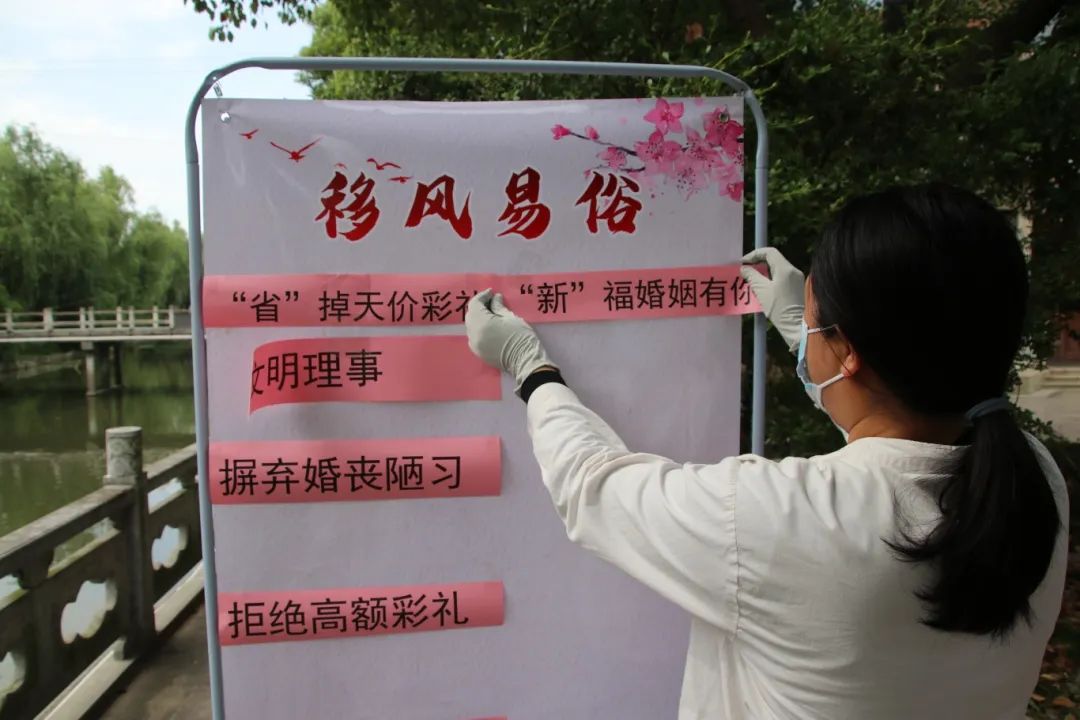 移风易俗
“省”掉天价彩礼 “新”福婚姻有你
文明理事
摒弃婚丧陋习
拒绝高额彩礼